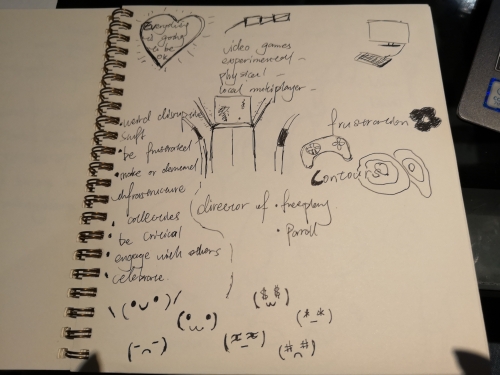 Everything
is going
to be
OK
video games
experimental –
physical –
local multiplayer –
• weird disruptive
stuff
• be frustrated
• make or demand
infrastructure
• collectives
• be critical
• engage with others
• celebrate.
frustration
Contours
director of • freeplay
• Parallel
\(•ᴗ•)/
($_$)
(•ω•)
(*_*)
(-_-)
(x_x)
(#_#)